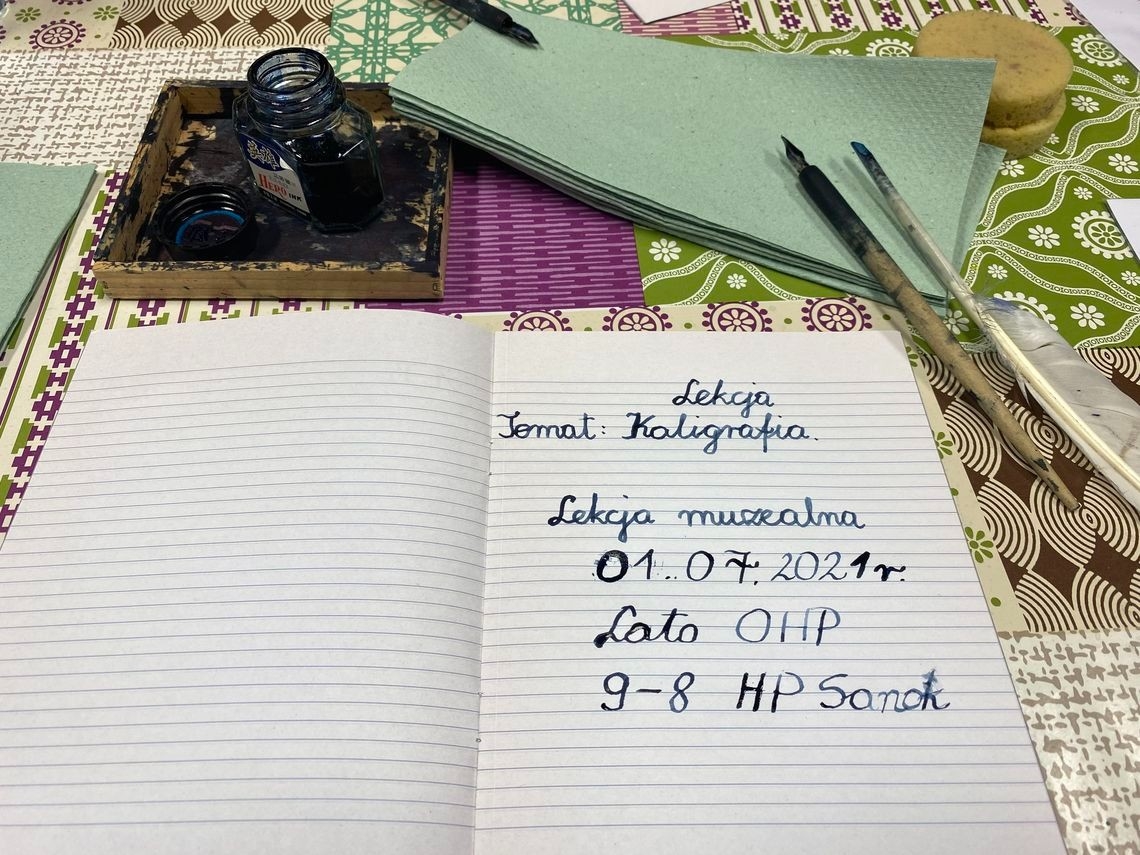 英雄
HERO INK
Lekcja
Temat: Kaligrafia.
Lekcja muzealna
01..07.2021r.
Lato OHP
9-8 HP Sanok